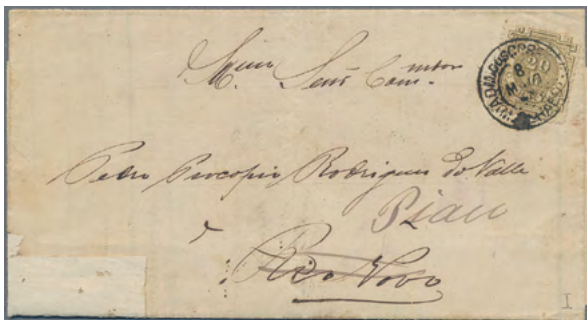 Senr Com.mtor
Pedro Procopio Rodrigues do Valle
Piau
Rio Novo
I